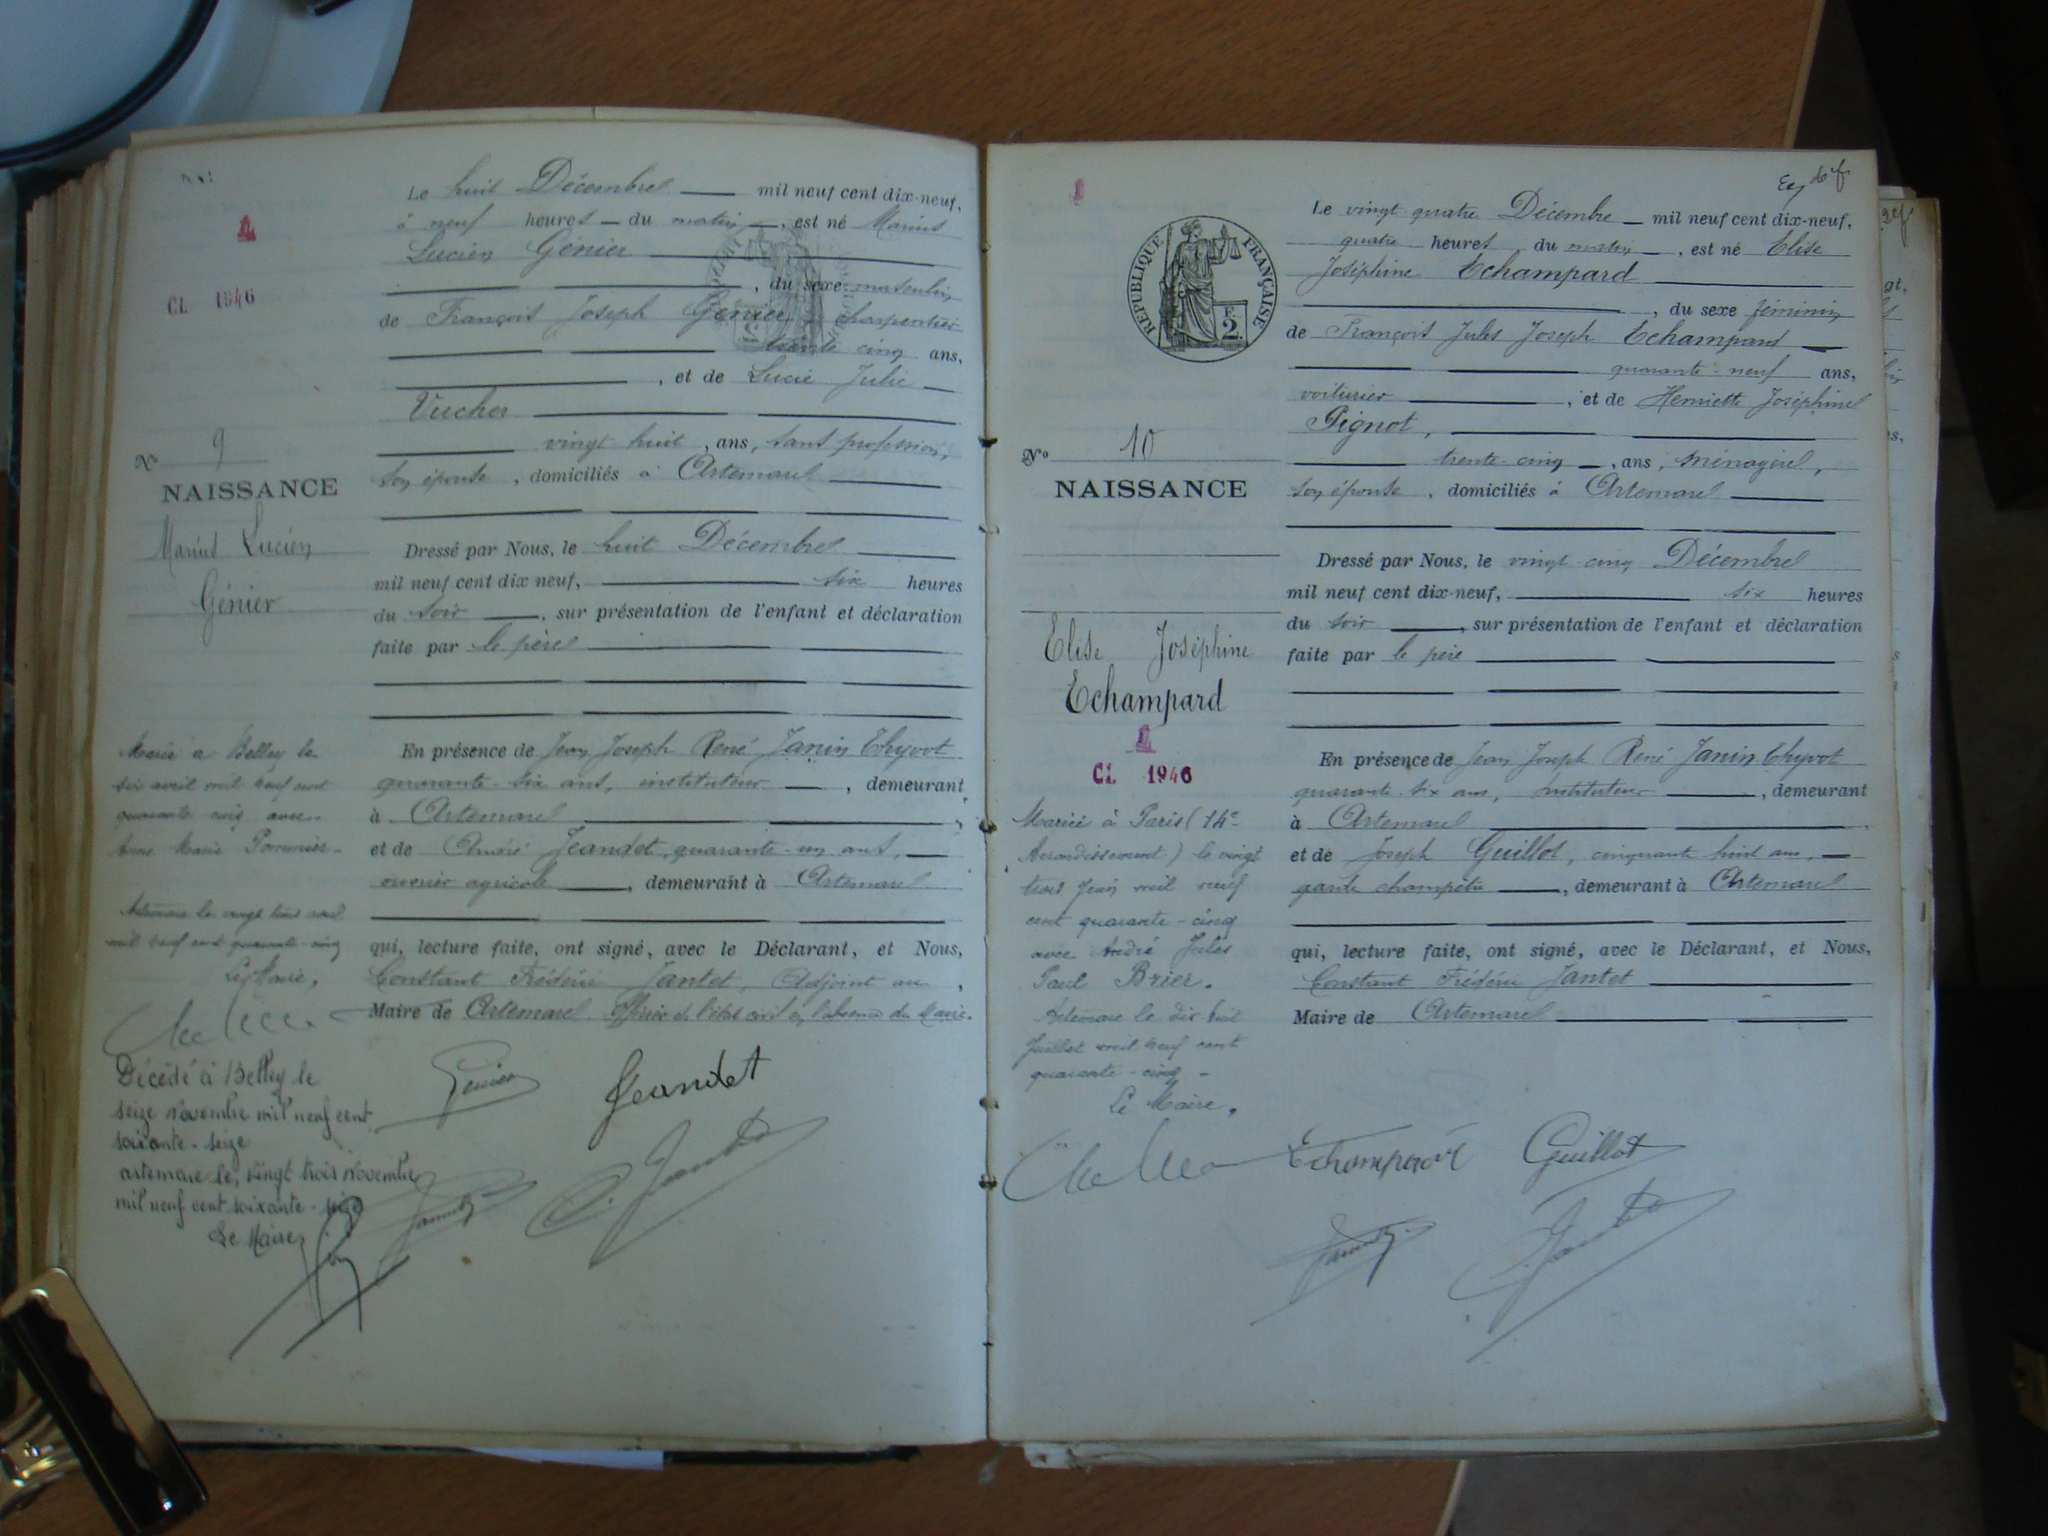 1
Cl. 1946
Le huit Décembre mil neuf cent dix-neuf,
à neuf heures du matin, est né Marius
Lucien Génier
, du sexe masculin
de François Joseph Génier charpentier
trente cinq ans,
, et de Lucie Julie
Vucher
vingt huit, ans, sans profession,
son épouse, domiciliés à Artemare
Dressé par Nous, le huit Décembre
mil neuf cent dix neuf, six heures
du soir, sur présentation de l'enfant et déclaration
faite par le père
En présence de Jean Joseph René Janin Thyvot
quarante-six ans, instituteur, demeurant
à Artemare
et de André Jeandet, quarante-un ans,
ouvrier agricole, demeurant à Artemare
qui, lecture faite, ont signé, avec le Déclarant, et Nous,
Constant Frédéric Jantet, Adjoint au
Maire de Artemare Officier de l'état civil en l'absence du Maire.
Génier Jeandet
No 9
NAISSANCE
Marius Lucien
Génier
Marié à Belley le
six avril mil neuf cent
quarante cinq avec
Anne Marie Pommier
Artemare le vingt trois avril
mil neuf cent quarante-cinq
Le Maire,
Décédé à Belley le
seize novembre mil neuf cent
soixante-seize
artemare le, vingt trois novembre
mil neuf cent soixante-seize
Le Maire,
1
RÉPUBLIQUE FRANÇAISE
F. 2
Le vingt quatre Décembre mil neuf cent dix-neuf,
quatre heures, du matin, est né Elise
Joséphine Echampard
, du sexe féminin
de François Jules Joseph Echampard
quarante-neuf ans,
voiturier, et de Henriette Joséphine
Pignot,
trente-cinq, ans, ménagère,
son épouse, domiciliés à Artemare
Dressé par Nous, le vingt cinq Décembre
mil neuf cent dix-neuf, six heures
du soir, sur présentation de l'enfant et déclaration
faite par le père
En présence de Jean Joseph René Janin Thyvot
quarante-six ans, instituteur, demeurant
à Artemare
et de Joseph Guillot, cinquante huit ans,
garde champêtre, demeurant à Artemare
qui, lecture faite, ont signé, avec le Déclarant, et Nous,
Constant Frédéric Jantet
Maire de Artemare
Echampard Guillot
No 10
NAISSANCE
Elise Joséphine
Echampard
1
Cl. 1946
Mariée à Paris (14e
Arrondissement) le vingt
trois Juin mil neuf
cent quarante-cinq
avec André Jules
Paul Brier.
Artemare le dix huit
Juillet mil neuf cent
quarante-cinq
Le Maire.